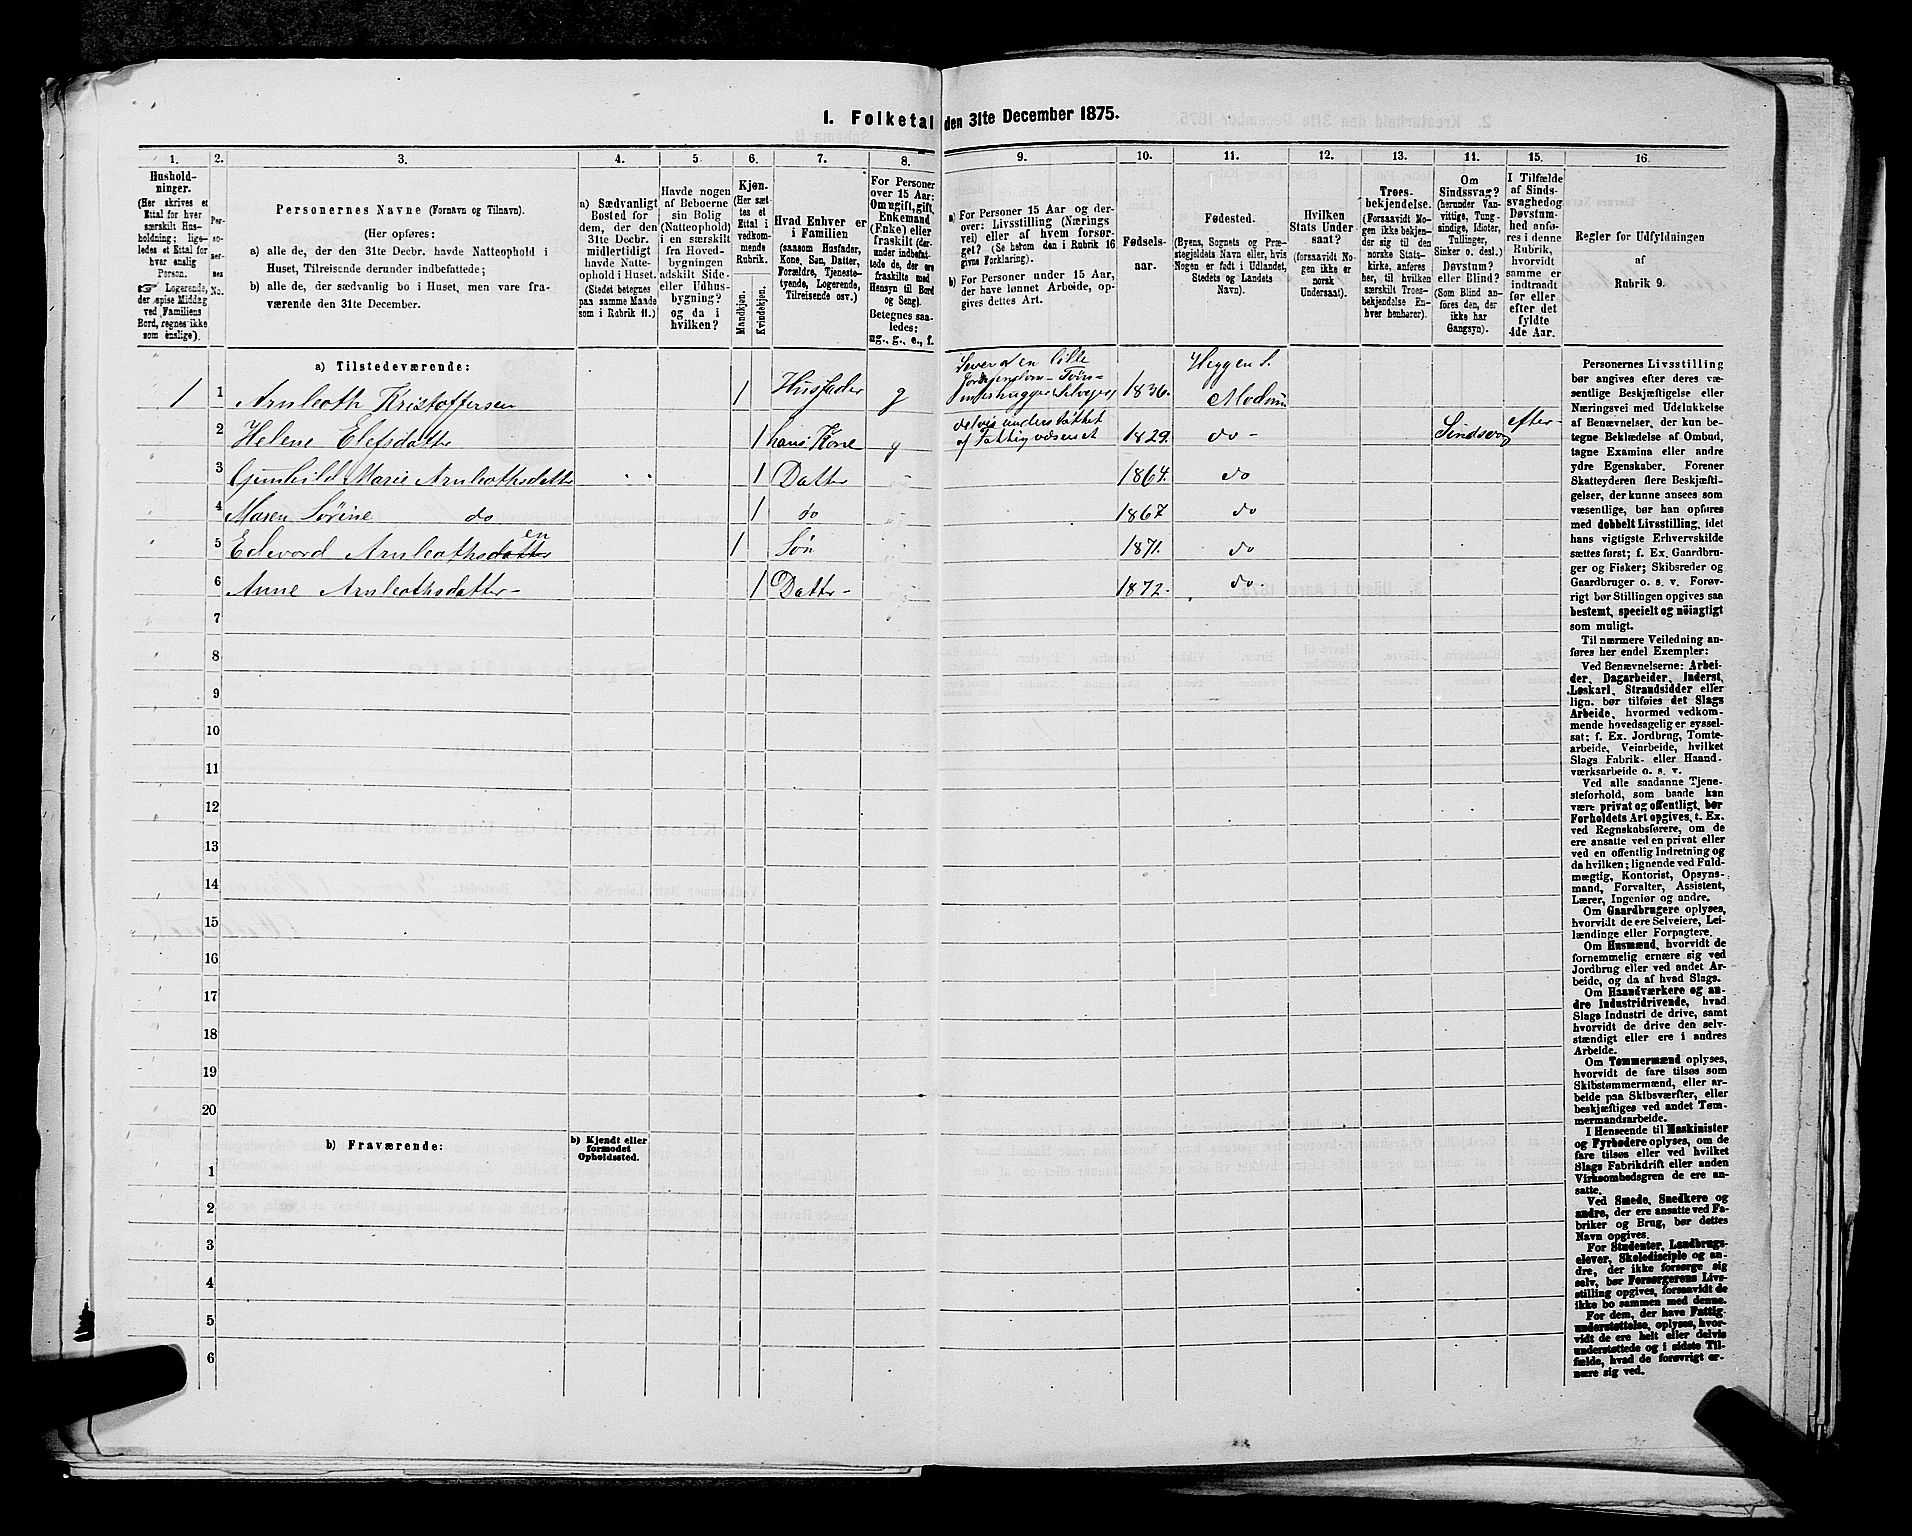 1. Folketal den 31te December 1875.
1. 2. 3. 4. 5. 6. 7. 8. 9. 10. 11. 12. 13. 11. 15. 16.
Hushold-
ninger.
(Her skrives et
Ettal for hver
særskilt Hus-
holdning; lige-
ledes et Ettal for
hver enslig
Person.
☞ Logerende,
der spise Middag
ved Familiens
Bord, regnes ikke
som enslige).
Per-
so-
ner-
nes
No.
Personernes Navne (Fornavn og Tilnavn).
(Her opføres:
a) alle de, der den 31te Decbr. havde Natteophold i
Huset, Tilreisende derunder indbefattede;
b) alle de, der sædvanlig bo i Huset, men vare fra-
værende den 31te December.
a) Sædvanligt
Bosted for
dem, der den
31te Decbr.
midlertidigt
havde Natte-
ophold i Huset.
(Stedet betegnes
paa samme Maade
som i Rubrik 11.)
Havde nogen
af Beboerne
sin Bolig
(Natteophold)
i en særskilt
fra Hoved-
bygningen
adskilt Side-
eller Udhus-
bygning?
og da i
hvilken?
Kjøn.
(Her sæt-
tes et
Ettal i
vedkom-
mende
Rubrik.
Mandkjøn.
Kvindekjøn.
Hvad Enhver er
i Familien
(saasom Husfader,
Kone, Søn, Datter,
Forældre, Tjeneste-
tyende, Logerende,
Tilreisende osv.)
For Personer
over 15 Aar:
Om ugift, gift,
Enkemand
(Enke) eller
fraskilt (der-
under indbefat-
tede de, der ere
fraskilte med
Hensyn til Bord
og Seng).
Betegnes saa-
ledes:
ug., g., e., f.
a) For Personer 15 Aar og der-
over: Livsstilling (Nærings-
vei) eller af hvem forsør-
get? (Se herom den i Rubrik 16
givne Forklaring).
b) For Personer under 15 Aar,
der have lønnet Arbeide, op-
gives dettes Art.
Fødsels-
aar.
Fødested.
(Byens, Sognets og Præ-
stegjeldets Navn eller, hvis
Nogen er født i Udlandet,
Stedets og Landets
Navn).
Hvilken
Stats Under-
saat?
(forsaavidt No-
gen ikke er
norsk
Undersaat).
Troes-
bekjendelse.
(Forsaavidt No-
gen ikke bekjen-
der sig til den
norske Stats-
kirke, anføres
her, til hvilken
særskilt Troes-
bekjendelse En-
hver henhører).
Om
Sindssvag?
(herunder Van-
vittige, Tung-
sindige, Idioter,
Tullinger,
Sinker o. desl.)
Døvstum?
eller Blind?
(Som Blind an-
føres den, der
ikke har
Gangsyn).
I Tilfælde
af Sinds-
svaghed og
Døvstum-
hed anfø-
res i denne
Rubrik,
hvorvidt
samme er
indtraadt
før eller
efter det
fyldte
4de Aar.
Regler for Udfyldningen
af
Rubrik 9.
a) Tilstedeværende:
1 1 Arnleoth Kristoffersen 1 Husfader g 1836. Heggen S. Modum
2 Helene Elefsdatter 1 hans Kone g delvis understøttet af Fattigvæsenet 1829. do - Sindsvag efter -
3 Gunhild Marie Arnleothsdatter 1 Datter - 1864. do
4 Maren Sørine do 1 do - 1867 do
5 Edevord Arnleothsdatter en 1 Søn - 1871. do
6 Anne Arnleothsdatter - 1 Datter - - 1872. do -
7
8
9
10
11
12
13
14
15
16
17
18
19
20
b) Fraværende:
b) Kjendt eller
formodet
Opholdssted.
1
2
3
4
5
6
Personernes Livsstilling
bør angives efter deres væ-
sentlige Beskjæftigelse eller
Næringsvei med Udelukkelse
af Benævnelser, der kun be-
tegne Beklædelse af Ombud,
tagne Examina eller andre
ydre Egenskaber. Forener
Skatteyderen flere Beskjæfti-
gelser, der kunne ansees som
væsentlige, bør han opføres
med dobbelt Livsstilling, idet
hans vigtigste Erhvervskilde
sættes først; f. Ex. Gaardbru-
ger og Fisker; Skibsreder og
Gaardbruger o. s. v. Forøv-
rigt bør Stillingen opgives saa
bestemt, specielt og nöiagtigt
som muligt.
Til nærmere Veiledning an-
føres her endel Exempler:
Ved Benævnelserne: Arbei-
der, Dagarbeider, Inderst,
Løskarl, Strandsidder eller
lign. bør tilføies det Slags
Arbeide, hvormed vedkom-
mende hovedsagelig er syssel-
sat; f. Ex. Jordbrug, Tomte-
arbeide, Veiarbeide, hvilket
Slags Fabrik- eller Haand-
værksarbeide o. s. v.
Ved alle saadanne Tjene-
steforhold, som baade kan
være privat og offentligt, bør
Forholdets Art opgives, t. Ex.
ved Regnskabsførere, om de
ere ansatte ved en privat eller
ved en offentlig Indretning og
da hvilken; lignende ved Fuld-
mægtig, Kontorist, Opsyns-
mand, Forvalter, Assistent,
Lærer, Ingeniør og andre.
Om Gaardbrugere oplyses,
hvorvidt de ere Selveiere, Lei-
lændinge eller Forpagtere.
Om Husmænd, hvorvidt de
fornemmelig ernære sig ved
Jordbrug eller ved andet Ar-
beide, og da af hvad Slags.
Om Haandværkere og an-
dre Industridrivende, hvad
Slags Industri de drive, samt
hvorvidt de drive den selv-
stændigt eller ere i andres
Arbeide.
Om Tømmermænd oplyses,
hvorvidt de fare tilsøs som
Skibstømmermænd, eller ar-
beide paa Skibsværfter, eller
beskjæftiges ved andet Tøm-
mermandsarbeide.
I Henseende til Maskinister
og Fyrbødere oplyses, om de
fare tilsøs eller ved hvilket
Slags Fabrikdrift eller anden
Virksomhedsgren de ere an-
satte.
Ved Smede, Snedkere og
andre, der ere ansatte ved Fa-
briker og Brug, bør dettes
Navn opgives.
For Studenter, Landbrugs-
elever, Skoledisciple og an-
dre, der ikke forsørge sig
selv, bør Forsørgerens Livs-
stilling opgives, forsaavidt de
ikke bo sammen med denne.
For dem, der have Fattig-
understøttelse, oplyses, hvor-
vidt de ere helt eller delvis
understøttede og i sidste Til-
fælde, hvad de forøvrigt er-
nære sig ved.